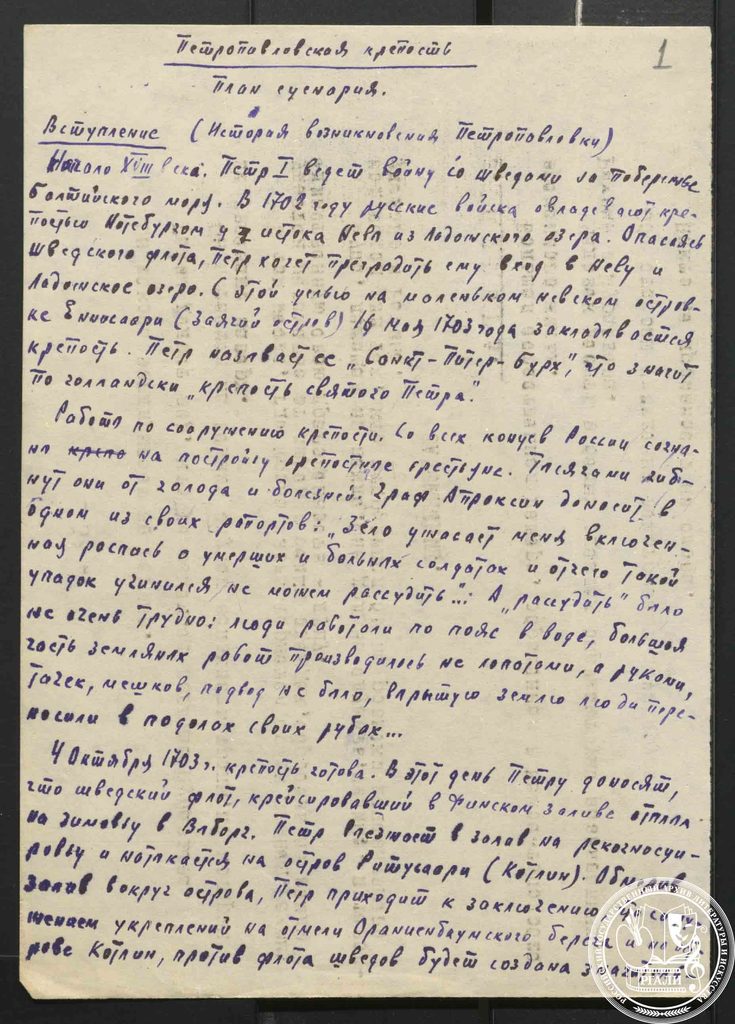 1
Петропавловская крепость
План сценария.
Вступление (История возникновения Петропавловки)
Начало XVIII века. Петр I ведет войну со шведами за побережье
Балтийского моря. В 1702 году русские войска овладевают кре-
постью Нотебургом у истока Невы из Ладожского озера. Опасаясь
шведского флота, Петр хочет преградить ему вход в Неву и
Ладожское озеро. С этой целью на маленьком невском остров-
ке Енисаари (Заячий остров) 16 мая 1703 года закладывается
крепость. Петр называет ее „Санкт-Питер-Бурх", что значит
по голландски „крепость святого Петра".
Работы по сооружению крепости. Со всех концов России согна-
ны крепо на постройку крепостные крестьяне. Тысячами гиб-
нут они от голода и болезней. Граф Апраксин доносит в
одном из своих рапортов: „Зело ужасает меня включен-
ная роспись о умерших и больных солдатах и отчего такой
упадок учинился не можем рассудить"... А „рассудить" было
не очень трудно: люди работали по пояс в воде, большая
часть земляных работ производилось не лопатами, а руками,
тачек, мешков, подвод не было, взрытую землю люди пере-
носили в подолах своих рубах...
4 Октября 1703 г. крепость готова. В этот день Петру доносят,
что шведский флот, крейсировавший в Финском заливе отплыл
на зимовку в Выборг. Петр выезжает в залив на рекогносци-
ровку и натыкается на остров Ритусаари (Котлин).
залив вокруг острова, Петр приходит к заключению, что с
укреплений на отмели Ораниенбаумского берега и на
рове Котлин, против флота шведов будет создана
РОССИЙСКИЙ ГОСУДАРСТВЕННЫЙ АРХИВ ЛИТЕРАТУРЫ И ИСКУССТВА
РГАЛИ